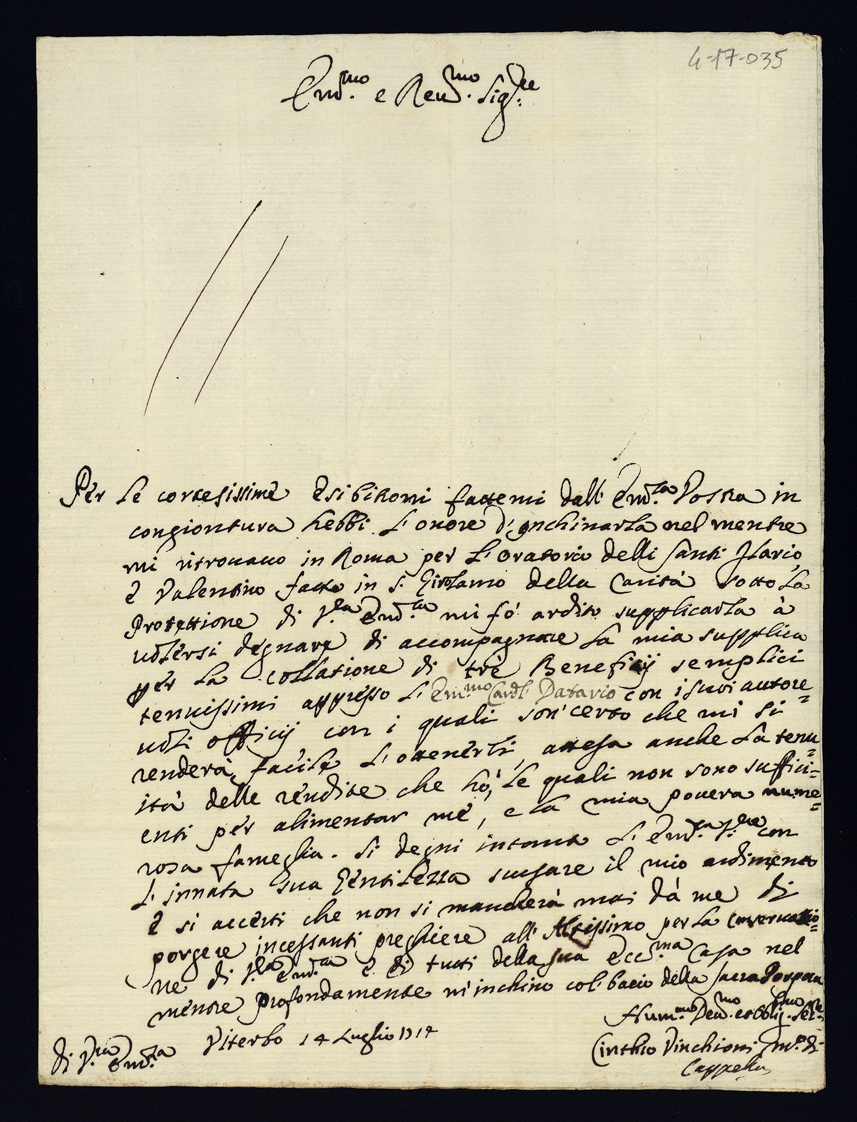 4-17-035
Em.mo e Reu.mo Sig.re
Per le cortesissime esibitioni fattemi dall' Em.za Vostra in
congiontura hebbi l'onore d'inchinarla nel mentre
mi ritrouauo in Roma per l'oratorio delli Santi Ilario
è Valentino fatto in S. Girolamo della Carità sotto la
Protettione di V.ra Em.za mi fò ardito supplicarla à
uolersi degnare di accompagnare la mia supplica
per la collatione di trè Beneficij semplici
tenuissimi appresso l'Em.mo Card.l Datario con i suoi autore=
uoli officij con i quali son' certo che mi si
renderà facile l'ottenerli attesa anche la tenu=
ità delle rendite che hò, le quali non sono suffici=
enti per alimentar mè, e la mia pouera nume=
rosa fameglia. Si degni intanto l'Em.za V.ra con
l'innata sua Gentilezza scusare il mio ardimento
è si accerti che non si mancherà mai dà me di
porgere incessanti preghiere all' Altissimo per la conseruatio=
ne di V.ra Em.za è di tutti della sua Ecc.ma Casa nel
mentre profondamente m'inchino col bacio della sacra Porpora
di V.ra Em.za Viterbo 14 Luglio 1717
Hum.mo Deu.mo et Obblig.mo Ser.re
Cinthio Vinchioni M.ro di
Cappella